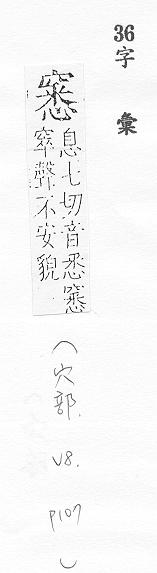 36字 彙
窸 息七切音悉窸
窣聲不安貌
（穴部. V8. P107）